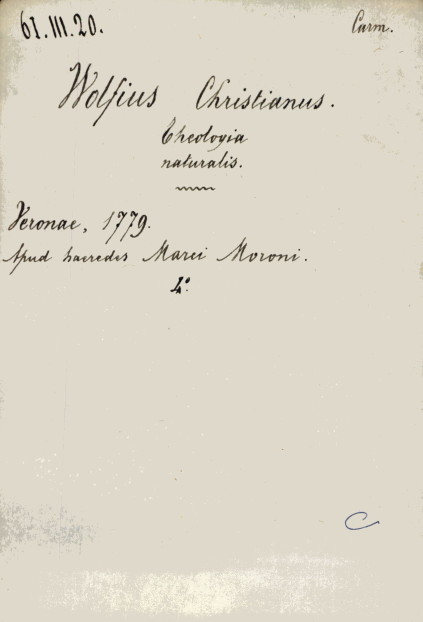 61.III.20.
Carm.
Wolfius Christianus.
Theologia
naturalis.
Veronae, 1779.
Apud haeredes Marci Moroni.
4°.
C